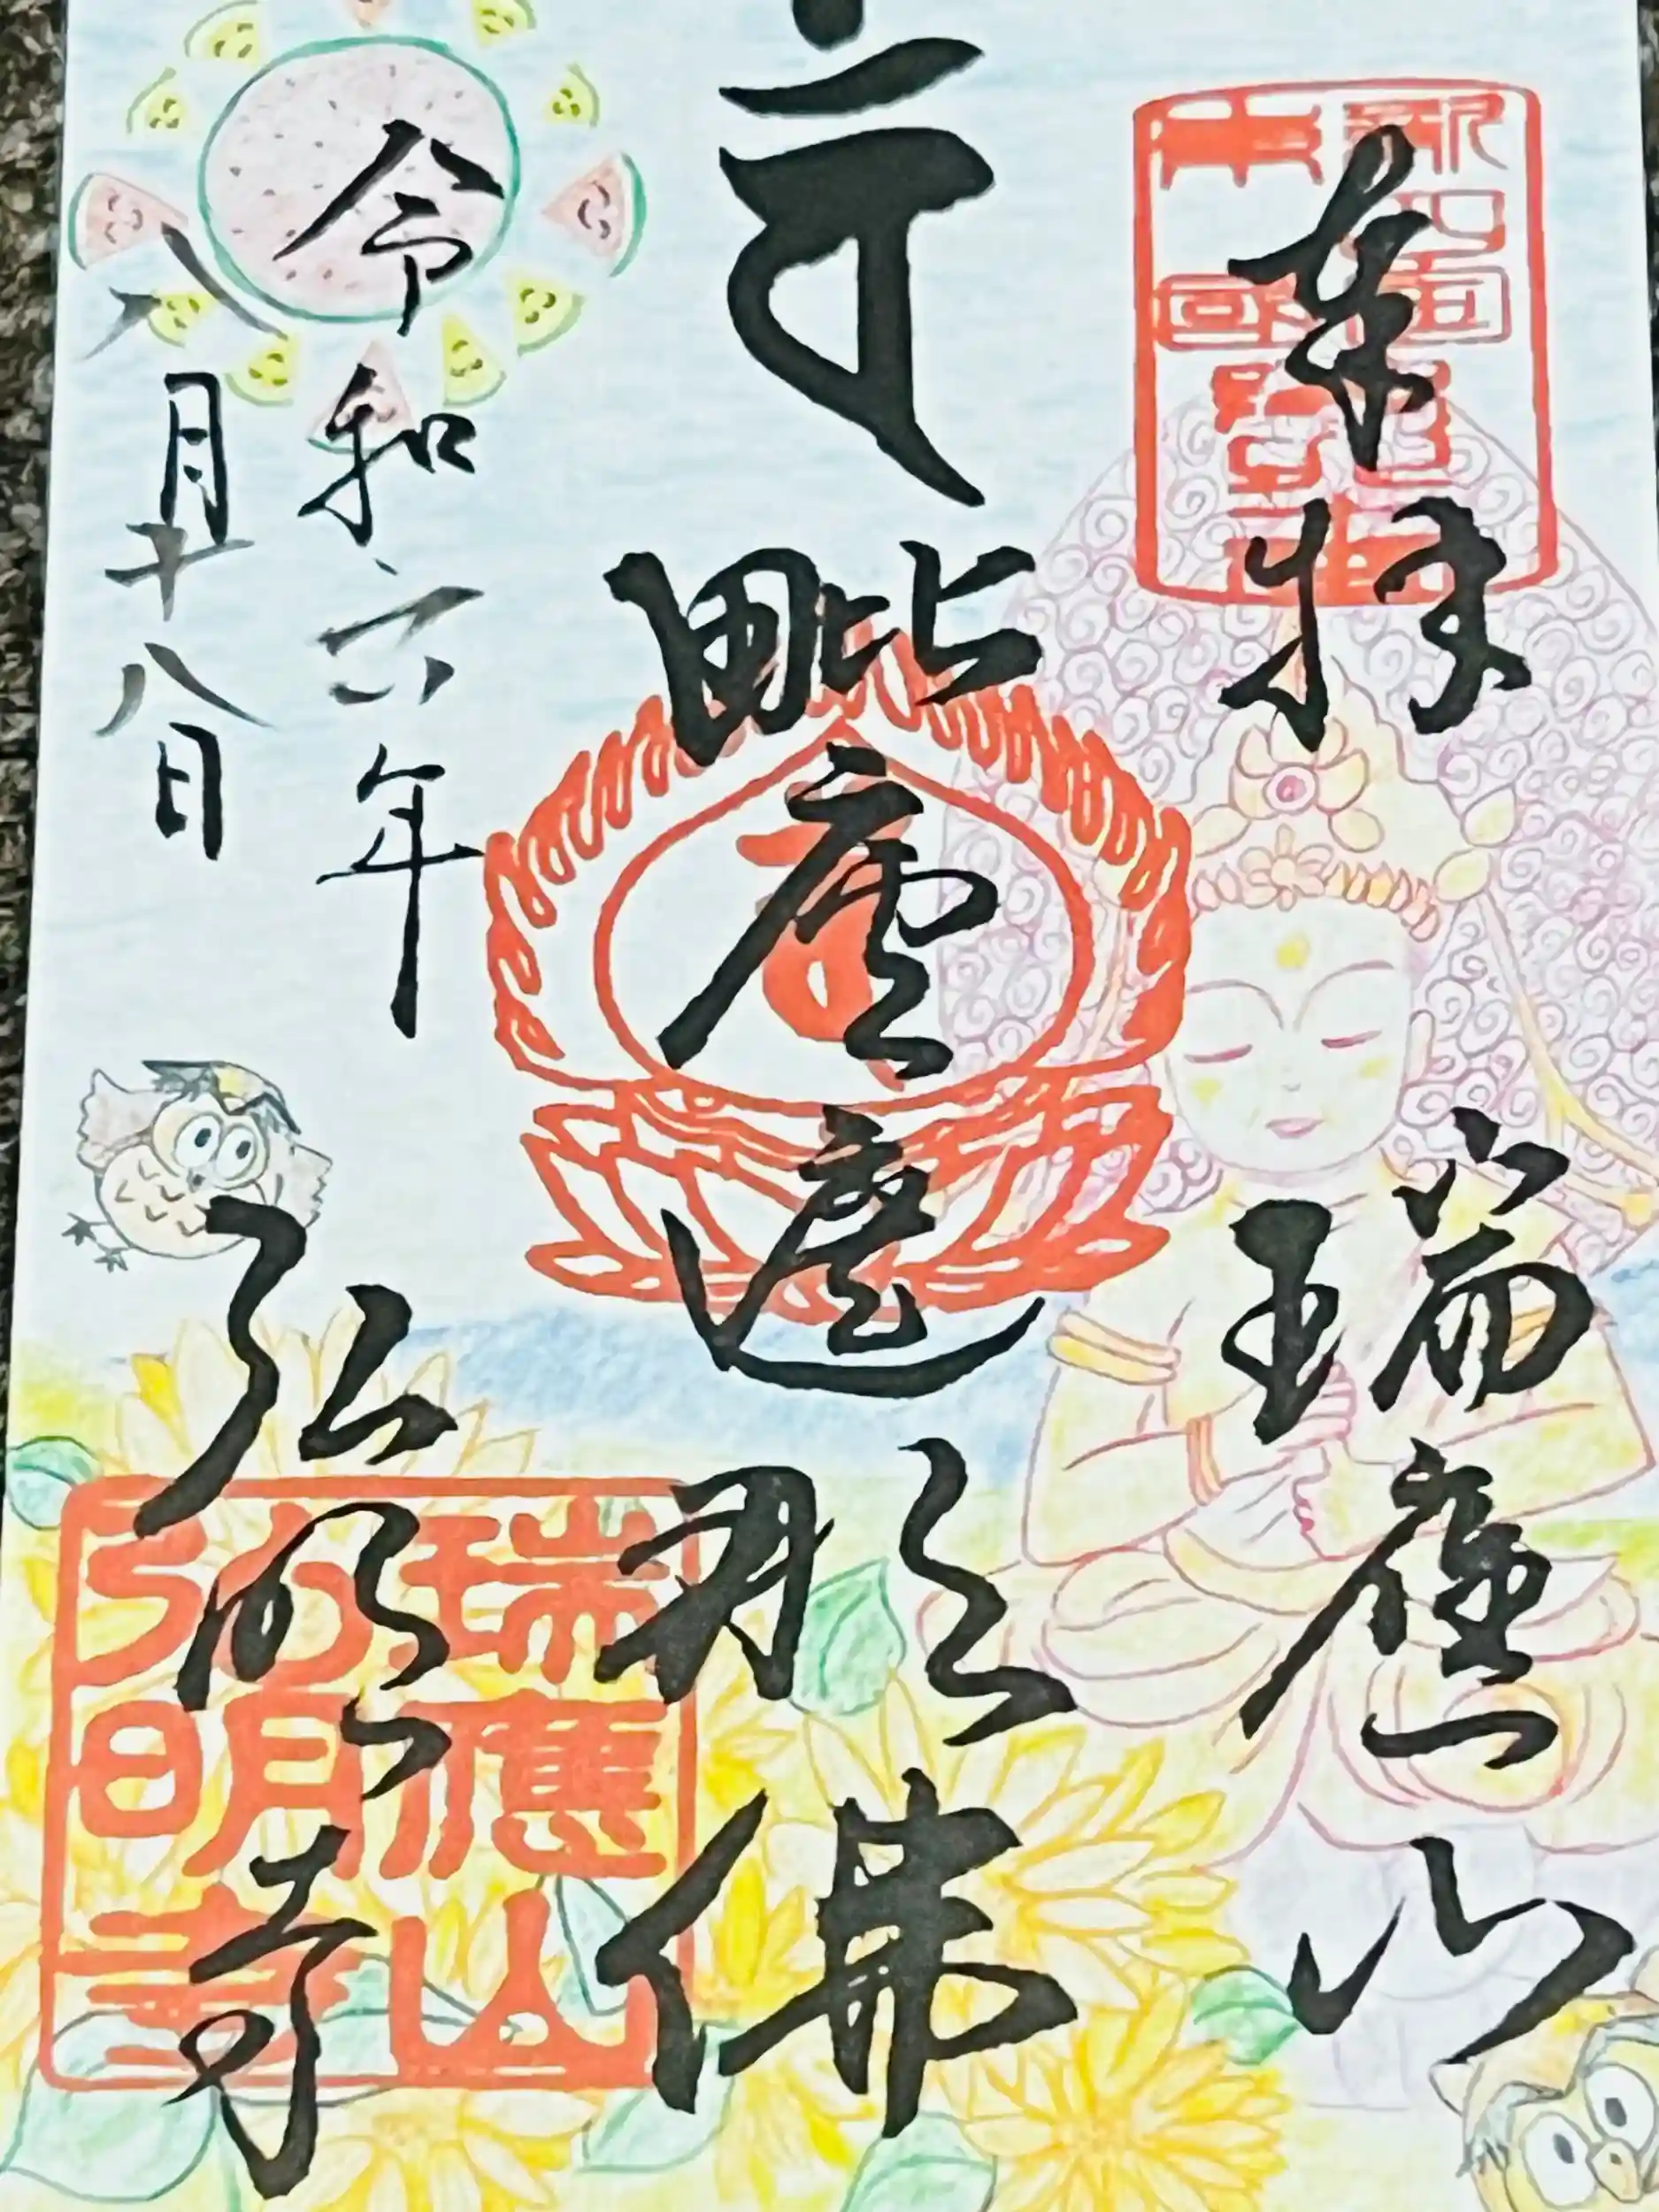 奉拝 瑞應山
毗盧遮那佛
令和六年
八月十八日
弘明寺
瑞應山
弘明寺